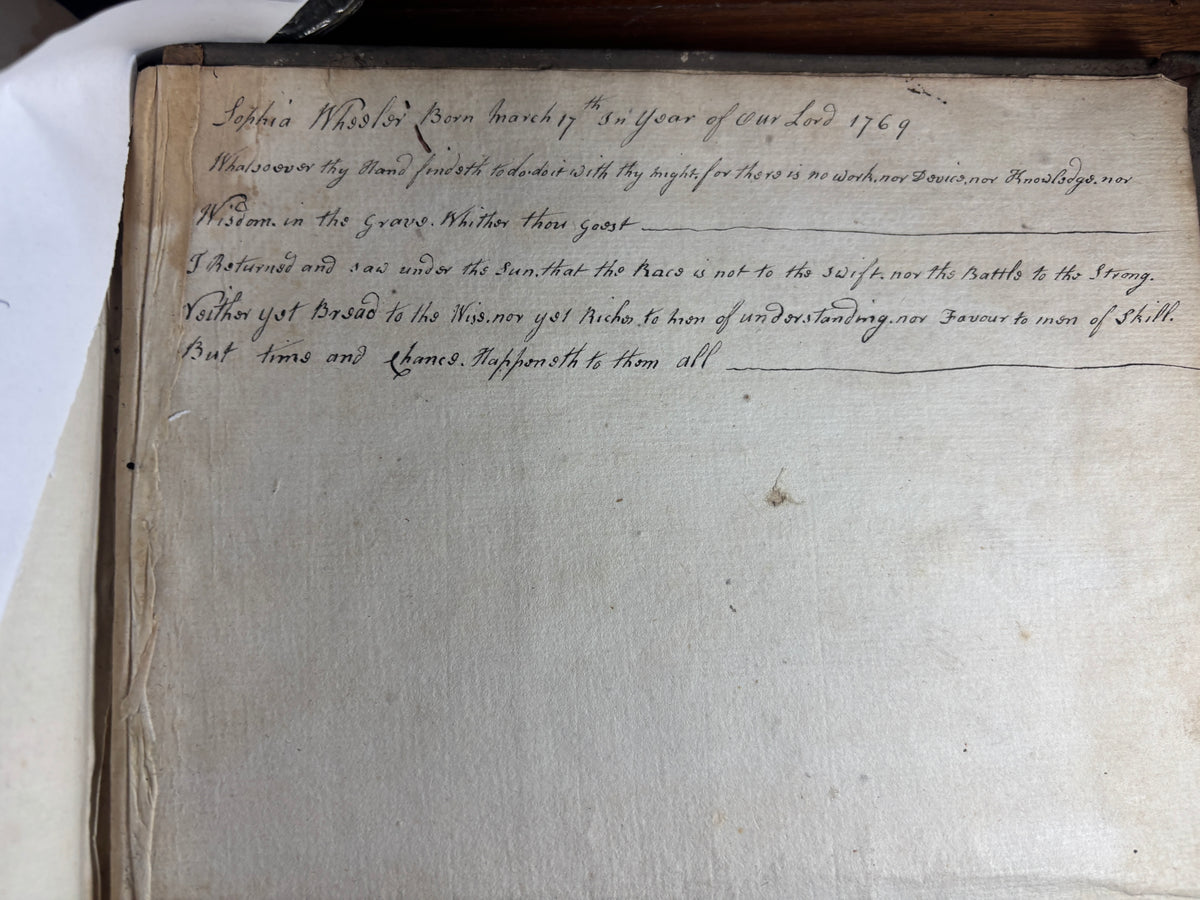 Sophia Wheeler Born March 17th In Year of Our Lord 1769
Whatsoever thy Hand findeth to do. do it with thy might. for there is no work. nor Device. nor Knowledge. nor
Wisdom. in the Grave. Whither thou goest
I Returned and saw under the Sun. that the Race is not to the swift. nor the Battle to the Strong.
Neither yet Bread to the Wise. nor yet Riches to men of understanding. nor Favour to men of Skill.
But time and Chance. Happeneth to them all